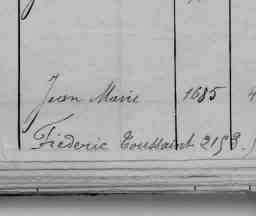 Jean Marie 1685
Fréderic Toussaint 2193.